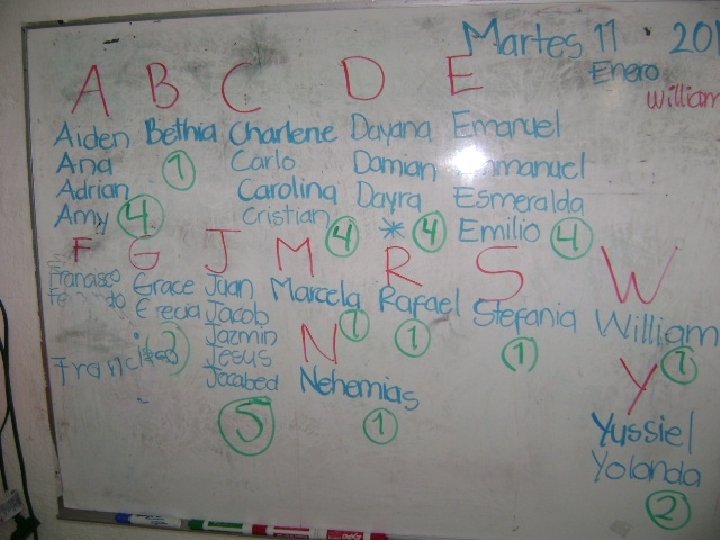 Martes 11 201
Enero
William
A B C D E
Aiden Bethia Charlene Dayana Emanuel
Ana 1 Carlo Damian mmanuel
Adrian Carolina Dayra Esmeralda
Amy 4 Cristian 4 * 4 Emilio 4
F G J M R S W
Francisco Grace Juan Marcela Rafael Stefania William
Grecia Jacob 1 1 1 1
3 Jazmin N Y
Francisco Jesus
Jezabed Nehemias Yussiel
5 1 Yolanda
2